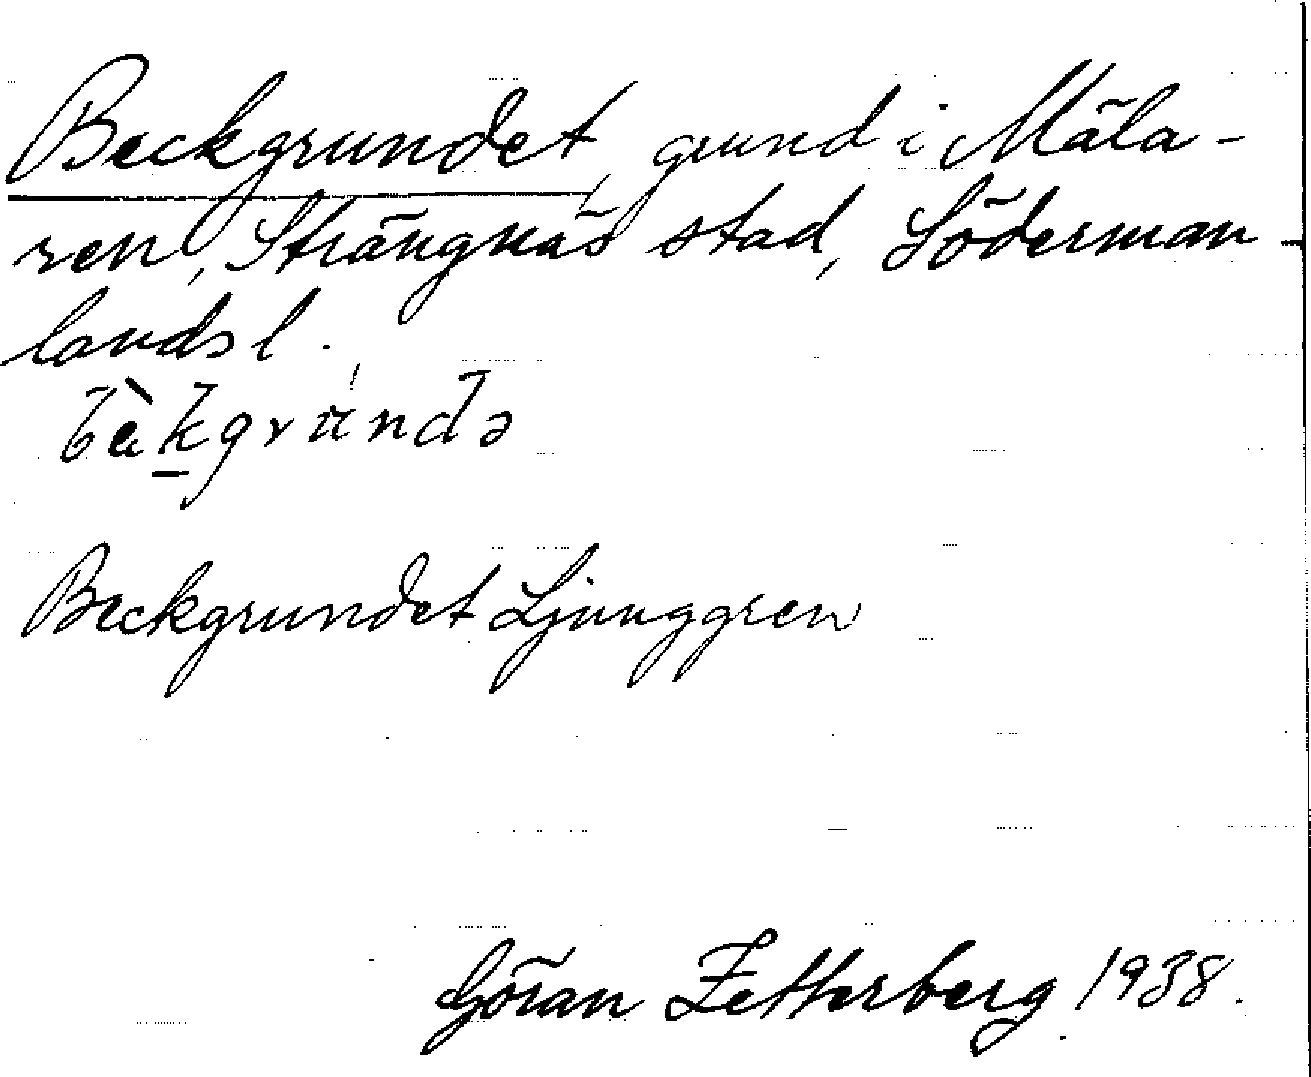 Beckgrundet, grund i Mäla-
ren, Strängnäs stad, Söderman-
lands l.
bè̱kgrúndə
Beckgrundet Ljunggren
Göran Zetterberg 1938.